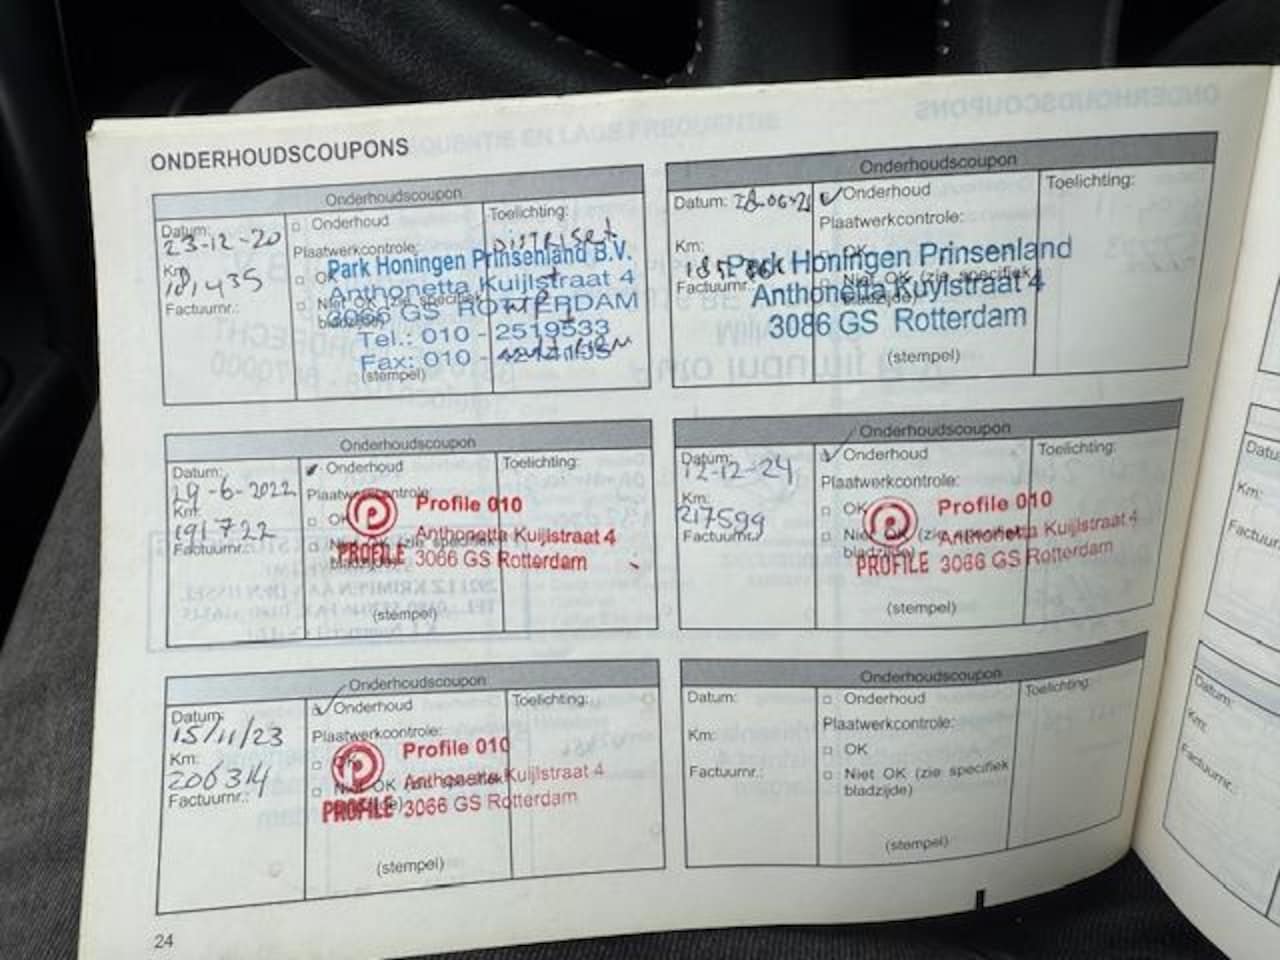 ONDERHOUDSCOUPONS
Onderhoudscoupon
Datum:
23-12-20
Km:
181435
Factuurnr.:
Onderhoud
Plaatwerkcontrole:
OK
Niet OK (zie specifiek
bladzijde)
Toelichting:
DISTRISET
Park Honingen Prinsenland B.V.
Anthonetta Kuijlstraat 4
3066 GS ROTTERDAM
Tel.: 010 - 2519533
Fax: 010 -
(stempel)
Onderhoudscoupon
Datum: 28-06-21
Km:
Factuurnr.:
Onderhoud
Plaatwerkcontrole:
OK
Niet OK (zie specifiek
bladzijde)
Toelichting:
Park Honingen Prinsenland
Anthonetta Kuylstraat 4
3086 GS Rotterdam
(stempel)
Onderhoudscoupon
Datum:
29-6-2022
Km:
191722
Factuurnr.:
Onderhoud
Plaatwerkcontrole:
OK
Niet OK (zie specifiek
bladzijde)
Toelichting:
Profile 010
Anthonetta Kuijlstraat 4
PROFILE 3066 GS Rotterdam
(stempel)
Onderhoudscoupon
Datum:
12-12-24
Km:
217599
Factuurnr.:
Onderhoud
Plaatwerkcontrole:
OK
Niet OK (zie specifiek
bladzijde)
Toelichting:
Profile 010
Anthonetta Kuijlstraat 4
PROFILE 3066 GS Rotterdam
(stempel)
Onderhoudscoupon
Datum:
15/11/23
Km:
206314
Factuurnr.:
Onderhoud
Plaatwerkcontrole:
OK
Niet OK (zie specifiek
bladzijde)
Toelichting:
Profile 010
Anthonetta Kuijlstraat 4
PROFILE 3066 GS Rotterdam
(stempel)
Onderhoudscoupon
Datum:
Km:
Factuurnr.:
Onderhoud
Plaatwerkcontrole:
OK
Niet OK (zie specifiek
bladzijde)
Toelichting:
(stempel)
24
Km:
Datum:
Km:
Factuurnr.: